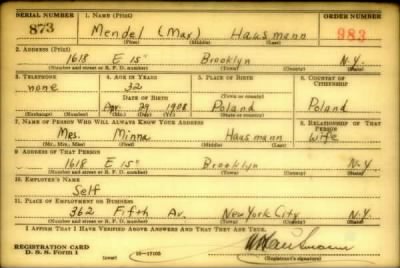 SERIAL NUMBER 1. NAME (Print) ORDER NUMBER
873 Mendel (Max) Hausmann 983
(First) (Middle) (Last)
2. ADDRESS (Print)
1618 E 15" Brooklyn N.Y.
(Number and street or R. F. D. number) (Town) (County) (State)
3. TELEPHONE 4. AGE IN YEARS 5. PLACE OF BIRTH 6. COUNTRY OF CITIZENSHIP
none 32 Poland Poland
DATE OF BIRTH
Apr. 29 1908
(Exchange) (Number) (Mo.) (Day) (Yr.) (State or country)
7. NAME OF PERSON WHO WILL ALWAYS KNOW YOUR ADDRESS 8. RELATIONSHIP OF THAT PERSON
Mrs. Minna Hausmann Wife
(Mr., Mrs., Miss) (First) (Middle) (Last)
9. ADDRESS OF THAT PERSON
1618 E 15" Brooklyn N.Y.
(Number and street or R. F. D. number) (Town) (County) (State)
10. EMPLOYER'S NAME
Self
11. PLACE OF EMPLOYMENT OR BUSINESS
362 Fifth Av. New York City N.Y.
(Number and street or R. F. D. number) (Town) (County) (State)
I AFFIRM THAT I HAVE VERIFIED ABOVE ANSWERS AND THAT THEY ARE TRUE.
REGISTRATION CARD
D. S. S. Form 1 (over) 16-17105 (Registrant's signature)